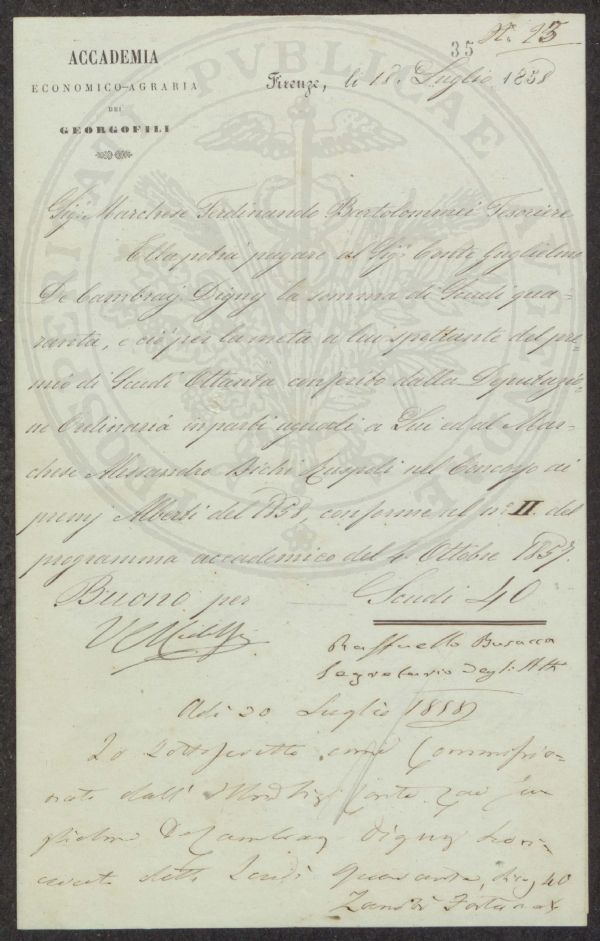 ACCADEMIA
ECONOMICO-AGRARIA
DEI
GEORGOFILI
35
N. 93
Firenze, li 18. Luglio 1858
Sig. Marchese Ferdinando Bartolommei Tesoriere
Ella potrà pagare al Sig. Conte Guglielmo
De Cambray Digny la somma di Scudi qua-
ranta, e ciò per la metà a lui spettante del pre-
mio di Scudi Ottanta conferito dalla Deputazio-
ne Ordinaria in parti uguali a Lui ed al Mar-
chese Alessandro Bichi Ruspoli nel Concorso ai
premj Alberti del 1858 conforme al n. II. del
programma accademico del 4. Ottobre 1857.
Buono per Scudi 40
Raffaello Busacca
Segretario degli Atti
Adì 20 Luglio 1858
Io Sottoscritto come Commissio-
nato dall' Conte Gu-
glielmo De Cambray Digny ho ri-
cevuto detti Scudi Quaranta, 40